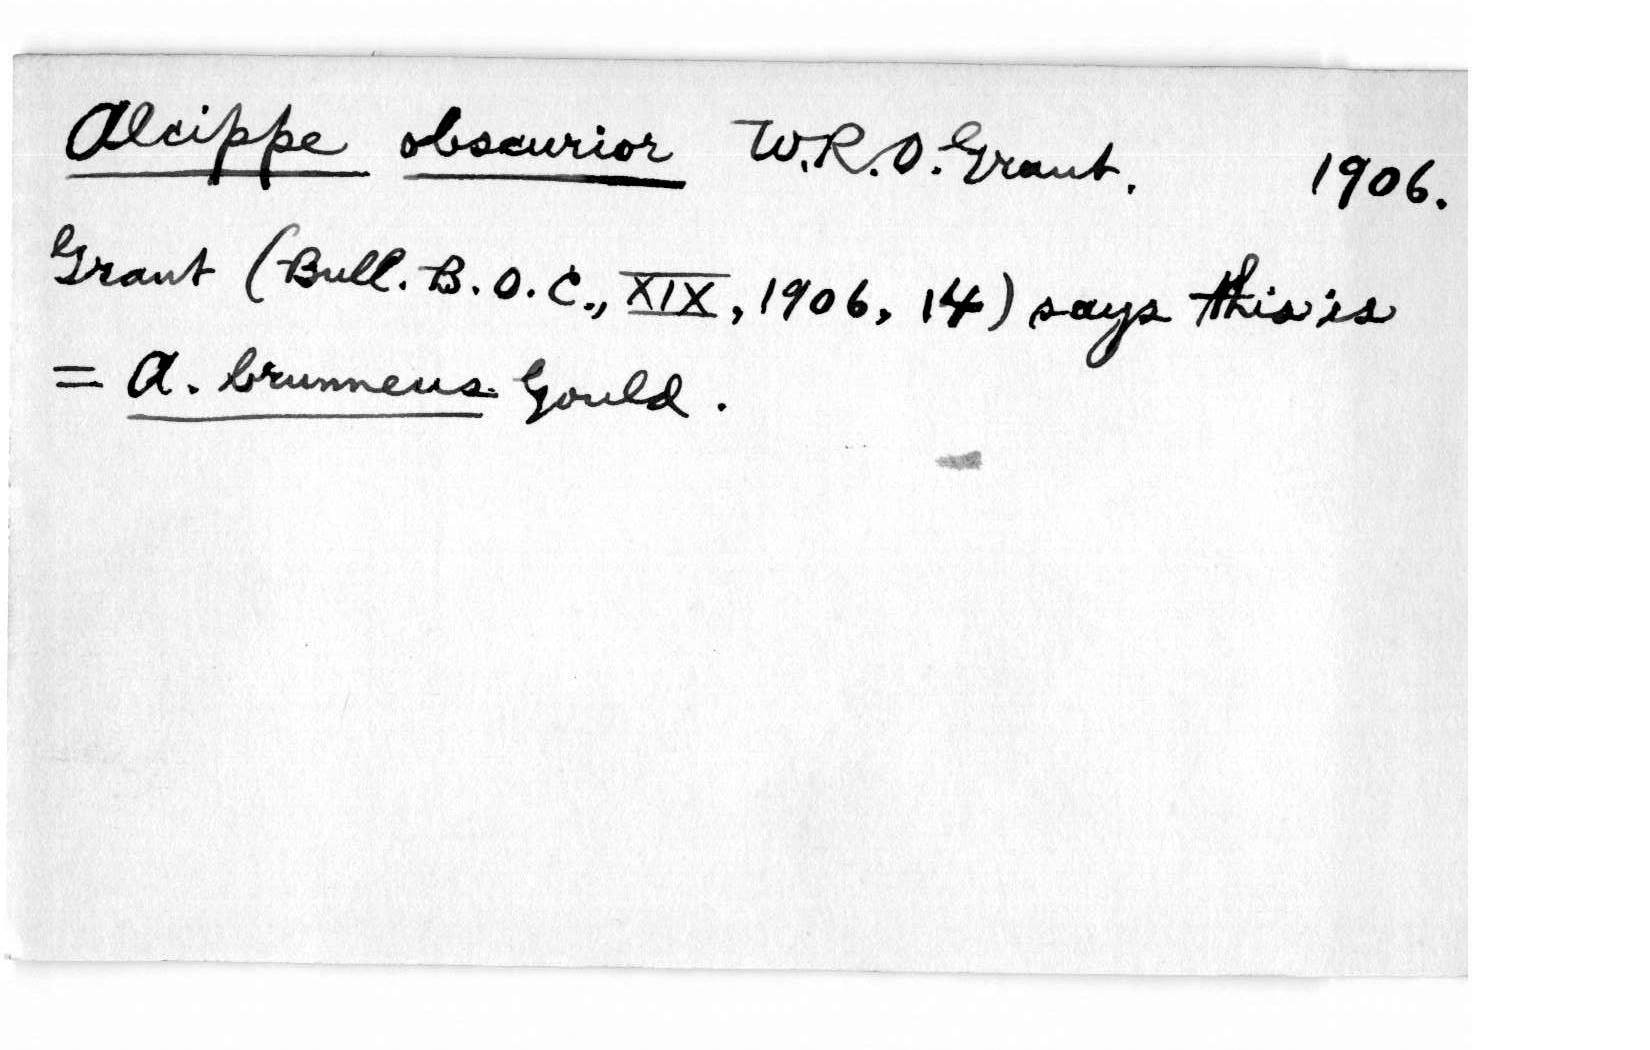 Alcippe obscurior W.R.O. Grant. 1906.
Grant (Bull. B.O.C., XIX, 1906, 14) says this is
= A. brunneus Gould.